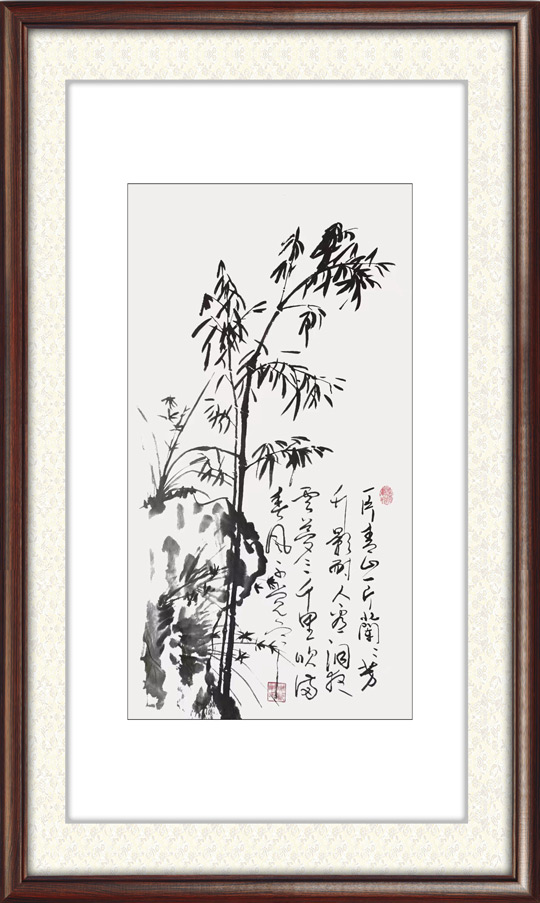 一片青山一片蘭〻芳
竹影耐人看洞庭
雲夢三千里吹滿
春風不覺寒